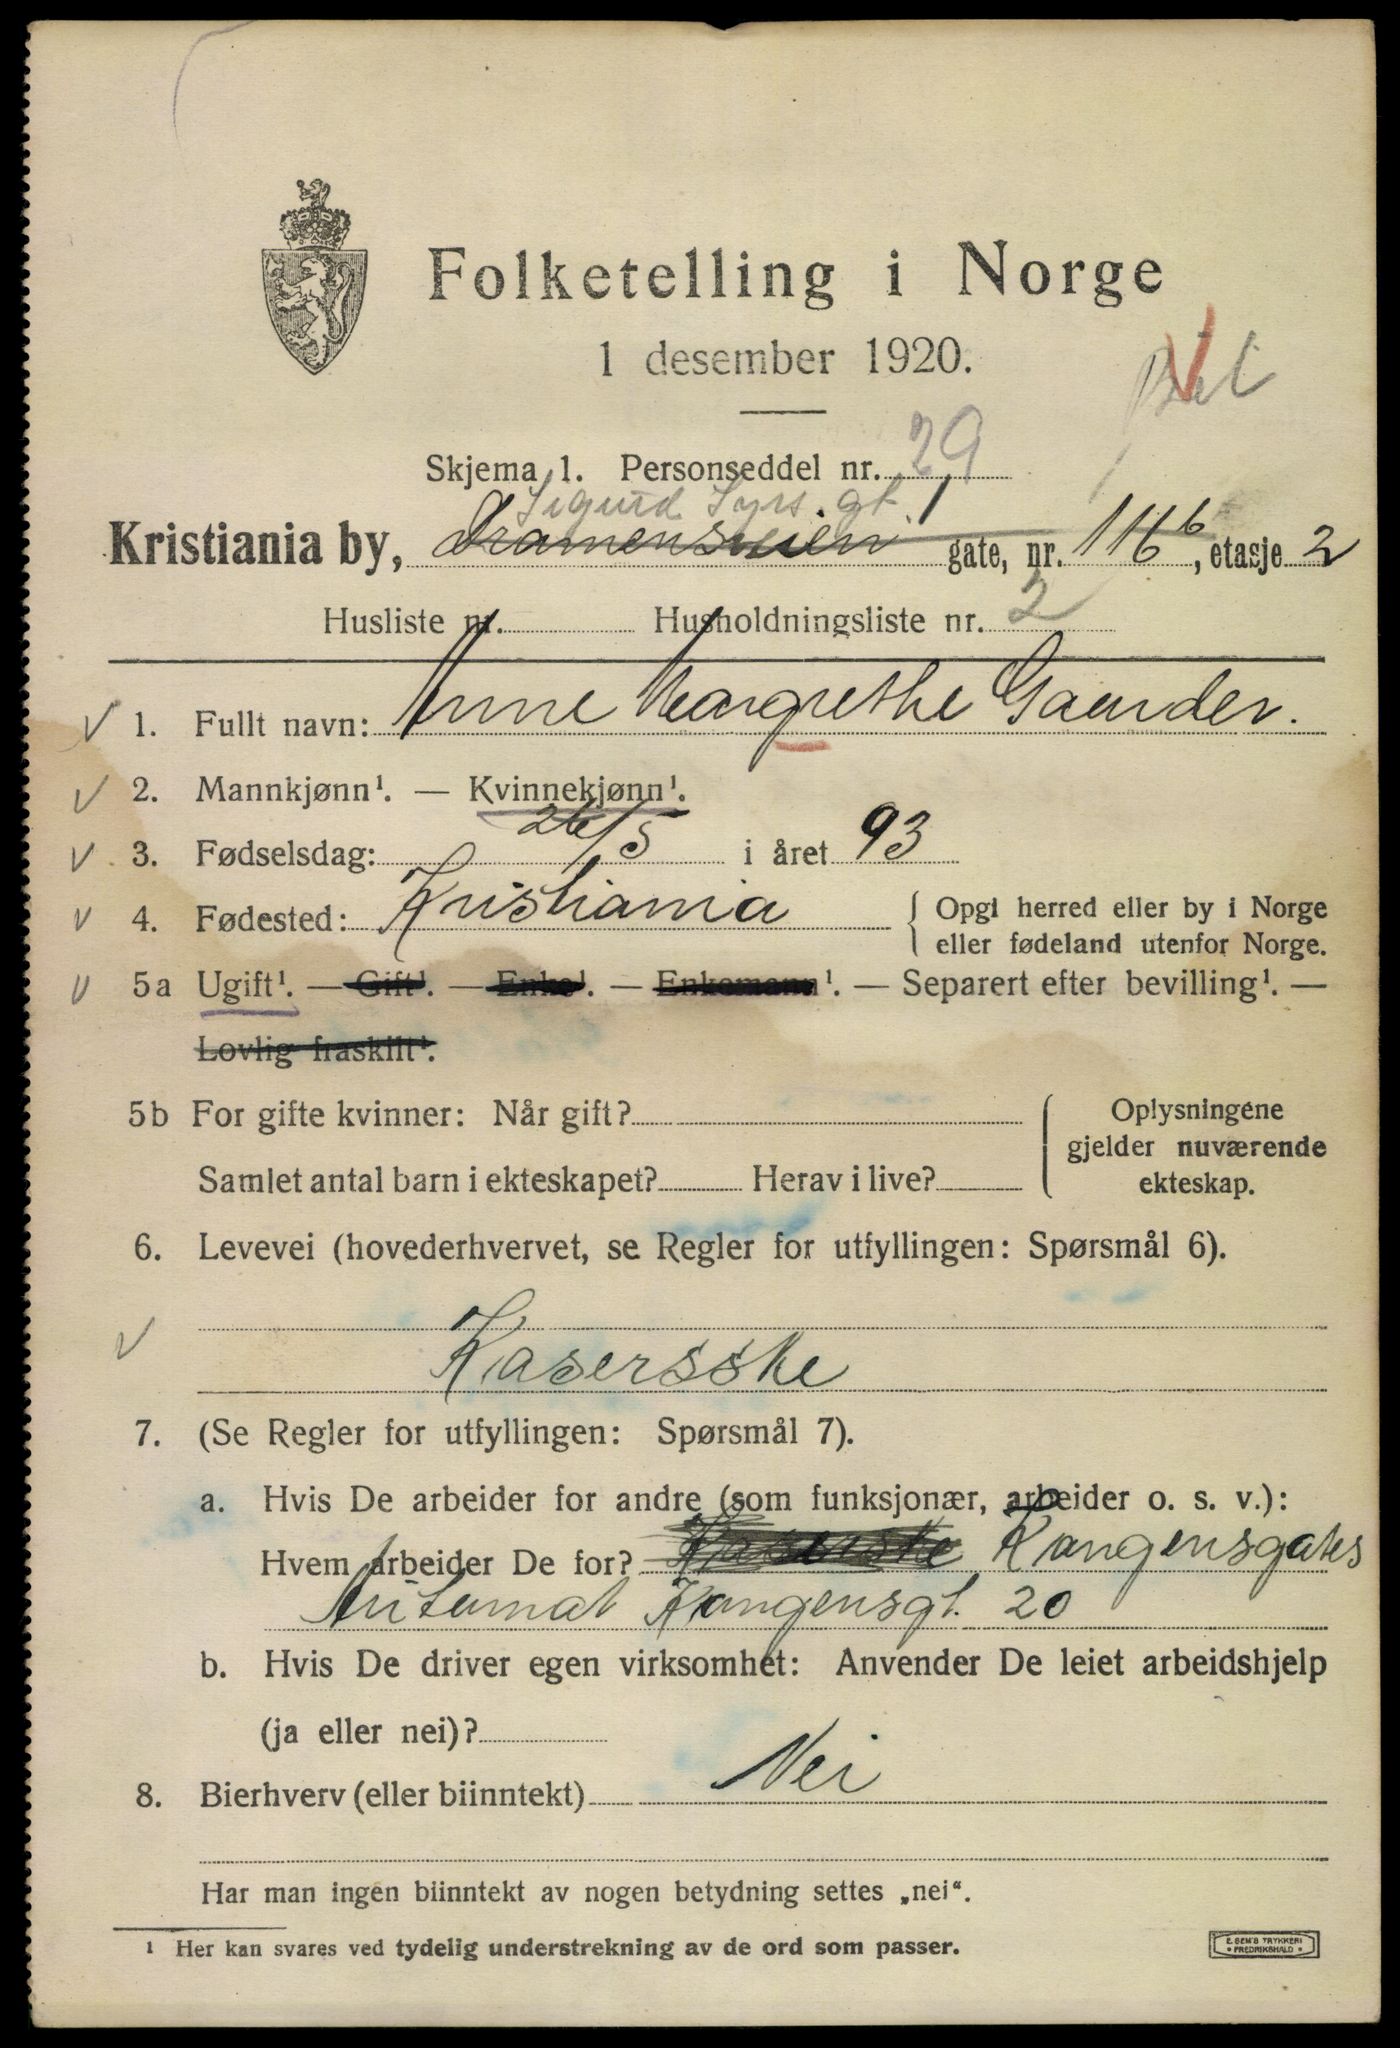 Folketelling i Norge
1 desember 1920.
Skjema 1. Personseddel nr. 29
Sigurd Syrs gt. 1
Kristiania by, Dramensveien gate, nr. 116 b, etasje 2
Husliste nr. Husholdningsliste nr. 2
1. Fullt navn: Anne Margrethe Gaander.
2. Mannkjønn¹. — Kvinnekjønn¹.
3. Fødselsdag: 26/5 i året 93
4. Fødested: Kristiania { Opgi herred eller by i Norge
eller fødeland utenfor Norge.
5a Ugift¹. — Gift¹. — Enke¹. — Enkemann¹. — Separert efter bevilling¹. —
Lovlig fraskilt¹.
5b For gifte kvinner: Når gift? { Oplysningene
gjelder nuværende
Samlet antal barn i ekteskapet? Herav i live? ekteskap.
6. Levevei (hovederhvervet, se Regler for utfyllingen: Spørsmål 6).
Kasersske
7. (Se Regler for utfyllingen: Spørsmål 7).
a. Hvis De arbeider for andre (som funksjonær, arbeider o. s. v.):
Hvem arbeider De for? Kaserske Kongensgates
Automat Kongensgt. 20
b. Hvis De driver egen virksomhet: Anvender De leiet arbeidshjelp
(ja eller nei)?
8. Bierhverv (eller biinntekt) Nei
Har man ingen biinntekt av nogen betydning settes „nei“.
¹ Her kan svares ved tydelig understrekning av de ord som passer.
E. SEM'S TRYKKERI
• FREDRIKSHALD •